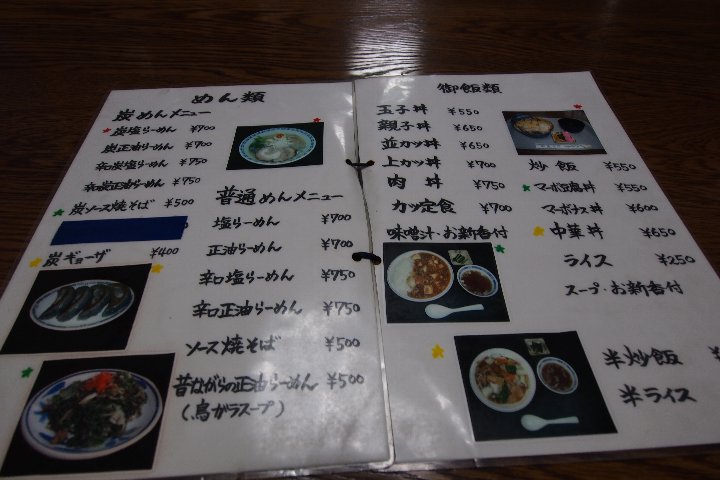 めん類
炭めんメニュー
炭塩らーめん ¥700
炭正油らーめん ¥700
辛口炭塩らーめん ¥750
辛口炭正油らーめん ¥750
炭ソース焼そば ¥500
炭ギョーザ ¥400
普通めんメニュー
塩らーめん ¥700
正油らーめん ¥700
辛口塩らーめん ¥750
辛口正油らーめん ¥750
ソース焼そば ¥500
昔ながらの正油らーめん ¥500
(鳥ガラスープ)
御飯類
玉子丼 ¥550
親子丼 ¥650
並カツ丼 ¥650
上カツ丼 ¥700
肉丼 ¥750
カツ定食 ¥700
味噌汁・お新香付
炒飯 ¥550
マーボ豆腐丼 ¥550
マーボナス丼 ¥600
中華丼 ¥650
ライス ¥250
スープ・お新香付
半炒飯
半ライス